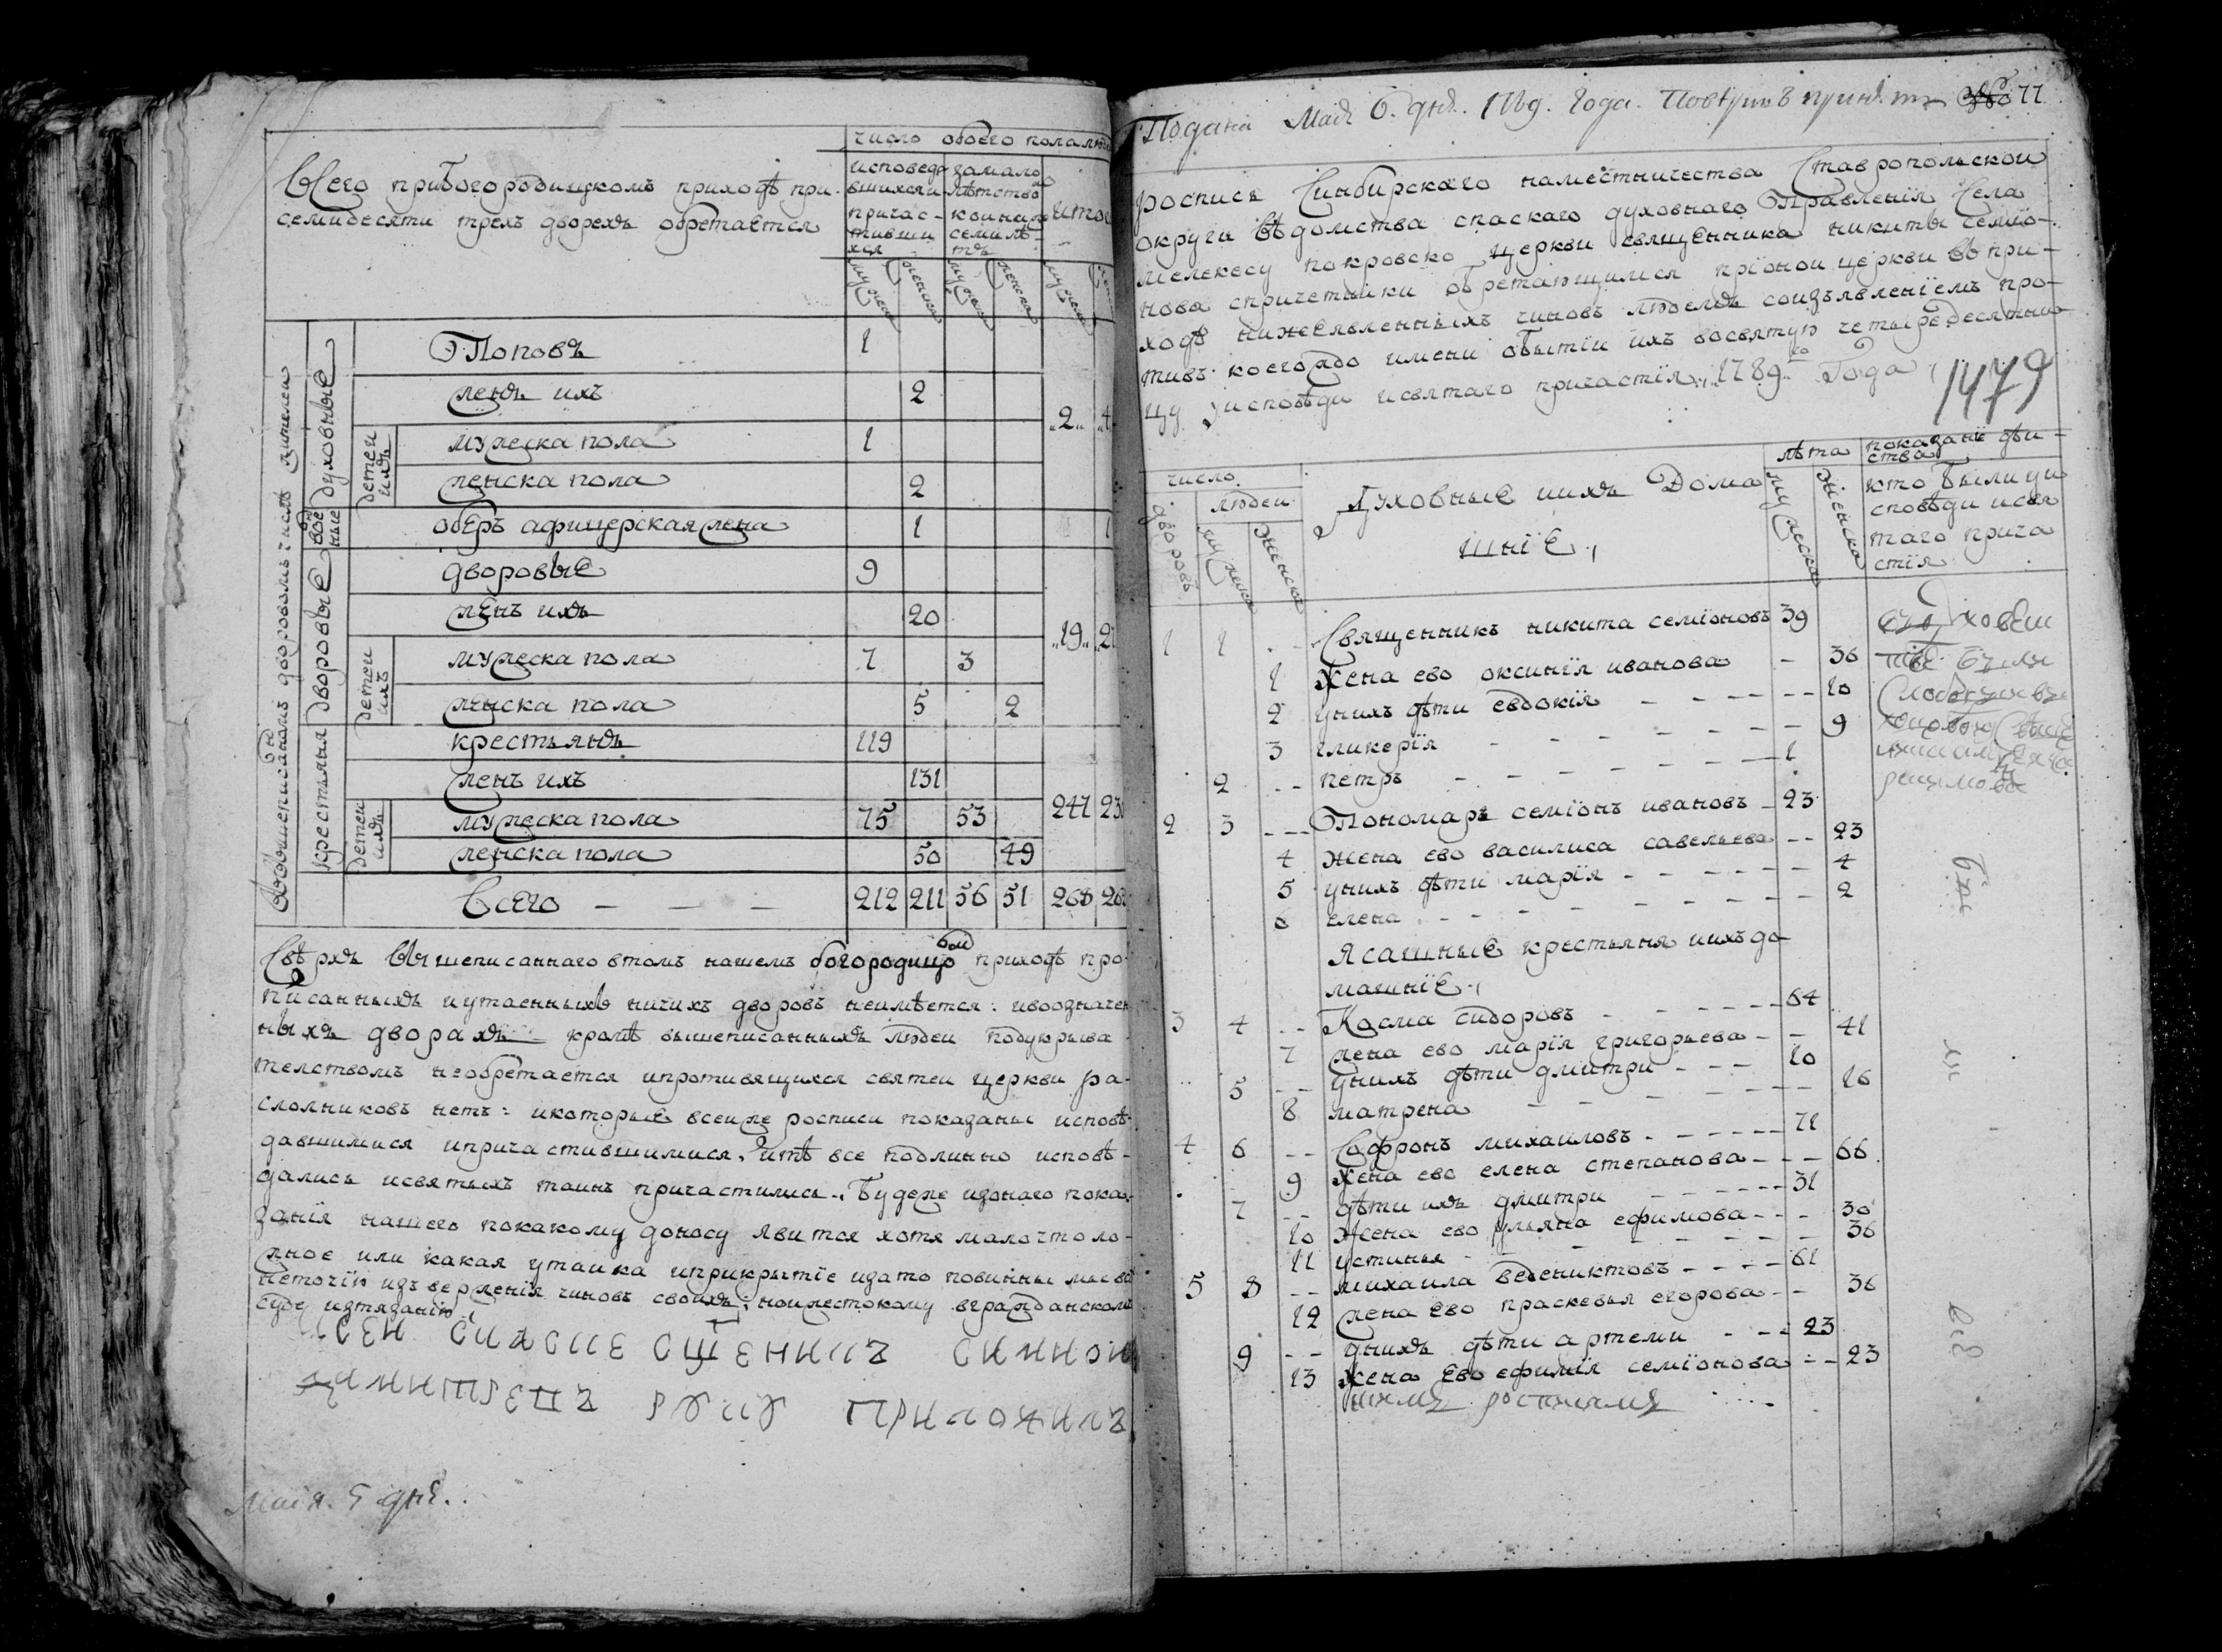 Всего прибогородицкомъ приходѣ при
семидесяти трехъ дворехъ обретается
число обоего пола
исповеда
вшихся и
причас-
тивши
хся
замало
лѣтство
коим
семи лѣ-
тъ
итого
мужеска женска мужеска женска мужеска
Вовышеписанномъ дворовомъ числѣ жителей
духовные
Поповъ 1
женъ ихъ 2
детей ихъ
мужеска пола 1
женска пола 2
"2" 4
военные
оберъ афицерская жена 1 1
дворовые
дворовые 9
женъ ихъ 20
детей ихъ
мужеска пола 7 3
женска пола 5 2
"19" 27
крестьяня
крестьянъ 119
женъ ихъ 131
детей ихъ
мужеска пола 75 53
женска пола 50 49
247 230
Всего — — — 212 211 56 51 268 262
Сверхъ вышеписаннаго втомъ нашемъ богородицкой приходѣ про-
писанныхъ иутаенныхъ ничихъ дворовъ неимѣется: ивоозначен
ныхъ дворахъ кромѣ вышеписанныхъ людей подукрыва
телствомъ необретается ипротивящихся святей церкви ра-
сколниковъ нетъ: икоторые всейже росписи показаны исповѣ-
давшимися ипричастившимися, итѣ все подлинно исповѣ-
дались исвятыхъ таинъ причастились. Будеже изонаго пока-
занія нашего покакому доносу явится хотя малочтоло-
жное или какая утаика иприкрытіе изато повинны мы
неточію изъвержения чиновъ своихъ, ноижестокому вгражданскомъ
суде изтязанію
руку приложилъ
Маія 5 днѣ.
Подана Маія 6 дня. 1789. Года. 77
роспись Синбирскаго наместничества Ставропольской
округи вѣдомства спаскаго духовнаго Правленія Села
мелекесу покровско церкви священника никиты семіо-
нова спричетники обретающимися прионой церкви въ при-
ходѣ нижеявленныхъ чиновъ людемъ соизъявленіемъ про-
тивъ коегождо имени обытіи ихъ восвятую четыредесятни
цу уисповѣди исвятаго причастія 1789го Года
1479
число
дворовъ
людей
мужеска женска
Духовные иихъ Дома
шніе
лѣта
мужеска женска
показаніе дѣй-
ства
кто были уи
сповѣди исвя
таго прича
стія
1 1 -- Священникъ никита семіоновъ 39
1 Жена ево оксинія иванова - 36
2 унихъ дѣти евдокія - - - - 10
3 гликерія - - - - - - 9
2 -- петръ - - - - - - 1
2 3 -- Пономарь семіонъ ивановъ - 23
4 жена ево василиса савельева -- 23
5 унихъ дѣти марія - - - - - 4
6 елена - - - - - - - 2
Ясашные крестьяня иихъ до
машніе
3 4 -- Косма сидоровъ - - - - 64
7 жена ево марія григорьева - - 41
5 -- унихъ дѣти дмитри - - - 10
8 матрена - - - - - - 16
4 6 -- Софронъ михаиловъ - - - - 71
9 Жена ево елена степанова - - - 66
7 -- дѣти ихъ дмитри - - - - - 31
10 Жена ево ульяна ефимова - - - 30
11 устинья - - - - - - - 36
5 8 -- михаила ведениктовъ - - - - 61
12 жена ево прасковья егорова - - 36
9 -- унихъ дѣти артеми - - - 23
13 жена ево ефимія семіонова - - 23